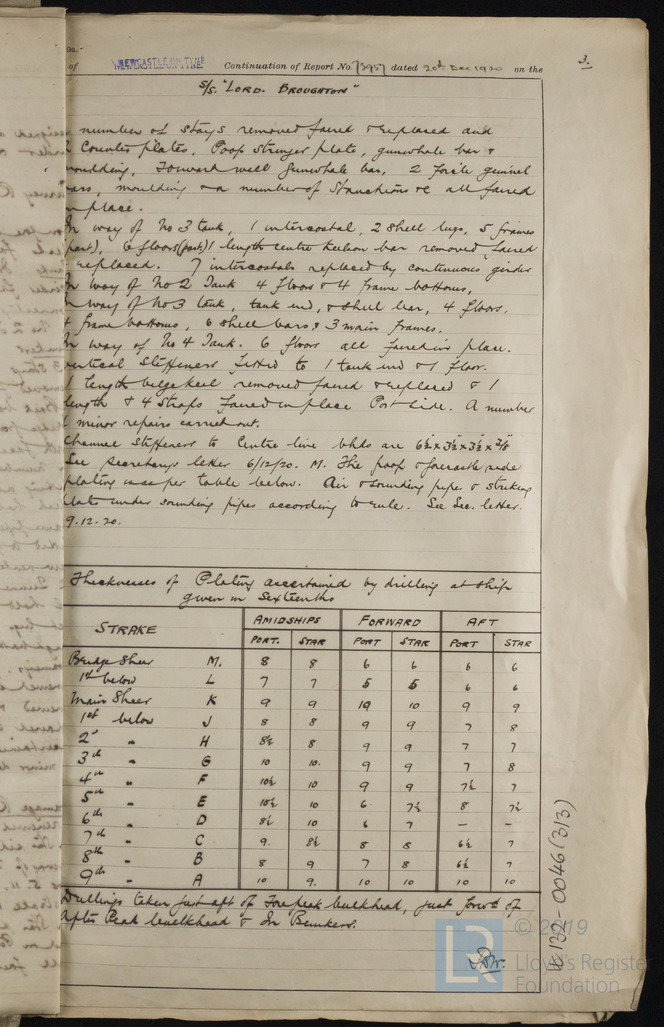 of NEWCASTLE ON TYNE Continuation of Report No. 73957 dated 20th Dec 1920 on the
3.
S/S. "LORD. BROUGHTON"
number of stays removed faired & replaced and
Counter plates. Poop stringer plate, gunwhale bar &
moulding. Forward well gunwhale bar, 2 focsle gunnel
bars, moulding & a number of stanchions &c all faired
in place.
In way of No 3 tank, 1 intercostal, 2 shell lugs, 5 frames
(part), 6 floors (part) 1 length centre keelson bar removed faired
& replaced. 7 intercostals replaced by continuous girder
In way of No 2 Tank 4 floors & 4 frame bottoms,
In way of No 3 tank, tank end, & shell bar, 4 floors,
4 frame bottoms, 6 shell bars & 3 main frames.
In way of No 4 Tank. 6 floors all faired in place.
vertical stiffeners fitted to 1 tank end & 1 floor.
1 length bilge keel removed faired & replaced & 1
length & 4 straps faired in place Port side. A number
minor repairs carried out.
Channel stiffeners to Centre line bhds are 6½ x 3½ x 3½ x
See secretarys letter 6/12/20. M. The poop & forecastle side
plating is as per table below. Air & sounding pipe & striking
plate under sounding pipes according to rule. See Sec. letter.
9.12.20.
Thicknesses of Plating ascertained by drilling at ship
given in Sixteenths
STRAKE AMIDSHIPS FORWARD AFT
PORT. STAR PORT STAR PORT STAR
Bridge Sheer M. 8 8 6 6 6 6
1st below L 7 7 5 5 6 6
Main Sheer K 9 9 10 10 9 9
1st below J 8 8 9 9 7 8
2nd " H 8½ 8 9 9 7 7
3rd " G 10 10. 9 9 7 8
4th " F 10½ 10 9 9 7½ 7
5th " E 10½ 10 6 7½ 8 7½
6th " D 8½ 10 6 7 – –
7th " C 9. 8½ 8 8 6½ 7
8th " B 8 9 7 8 6½ 7
9th " A 10 9. 10 10 10 10
Drillings taken just aft of Forepeak bulkhead, just forwd of
After Peak bulkhead & In Bunkers.
W132-0046(3/3)
© 2019
LR
Lloyd's Register
Foundation